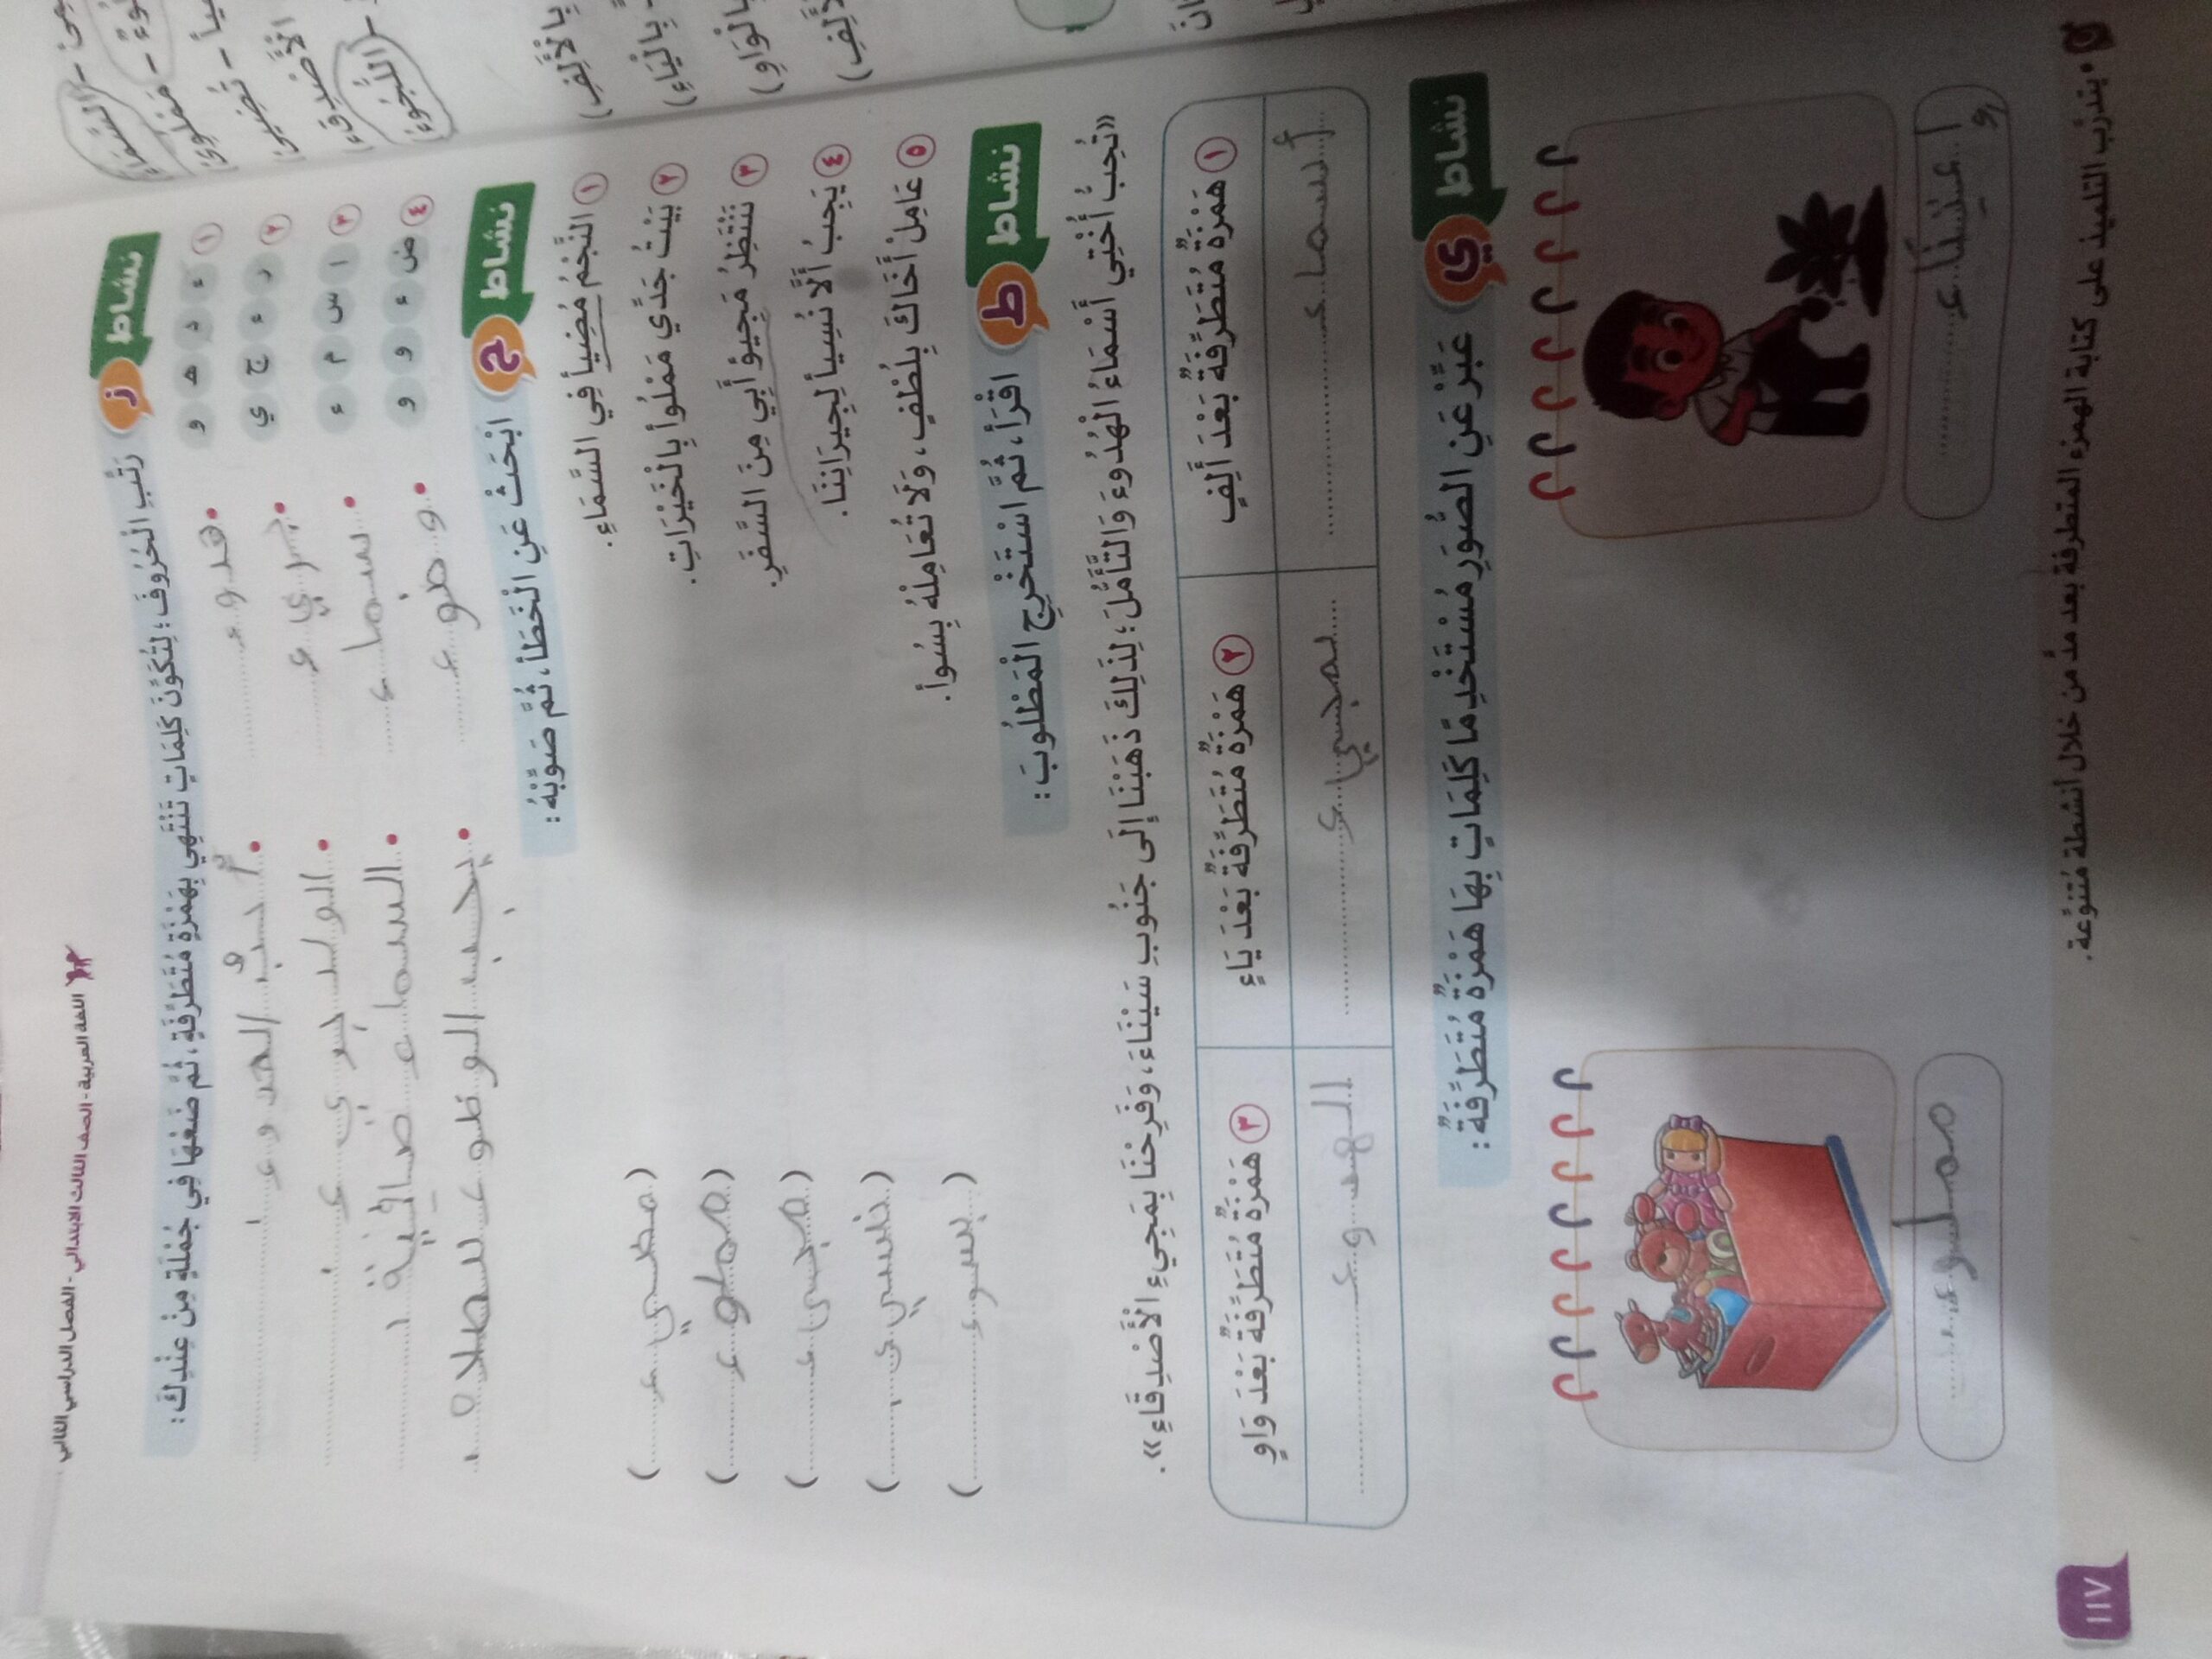 اللغة العربية - الصف الثالث الابتدائي - الفصل الدراسي الثاني
نشاط ز رَتِّبِ الْحُرُوفَ؛ لِتُكَوِّنَ كَلِمَاتٍ تَنْتَهِي بِهَمْزَةٍ مُتَطَرِّفَةٍ، ثُمَّ ضَعْهَا فِي جُمْلَةٍ مِنْ عِنْدِكَ:
١ ء د هـ و • هدوء • أحب الهدوء
٢ ر ء ج ي • جريء • الولد جريء
٣ ا س م ء • سماء • السماء صافية
٤ ض ء و و • وضوء • يجب الوضوء للصلاة
نشاط ح ابْحَثْ عَنِ الْخَطَأِ، ثُمَّ صَوِّبْهُ:
١ النَّجْمُ مُضِيأ فِي السَّمَاءِ. (مضيء)
٢ بَيْتُ جَدِّي مَمْلُوأ بِالْخَيْرَاتِ. (مملوء)
٣ نَنْتَظِرُ مَجِيؤ أَبِي مِنَ السَّفَرِ. (مجيء)
٤ يَجِبُ أَلَّا نُسِيأ لِجِيرَانِنَا. (نسيء)
٥ عَامِلْ أَخَاكَ بِلُطْفٍ، وَلَا تُعَامِلْهُ بِسُوأ. (بسوء)
نشاط ط اقْرَأْ، ثُمَّ اسْتَخْرِجِ الْمَطْلُوبَ:
«تُحِبُّ أُخْتِي أَسْمَاءُ الْهُدُوءَ وَالتَّأَمُّلَ؛ لِذَلِكَ ذَهَبْنَا إِلَى جَنُوبِ سَيْنَاءَ، وَفَرِحْنَا بِمَجِيءِ الْأَصْدِقَاءِ».
١ هَمْزَةٌ مُتَطَرِّفَةٌ بَعْدَ أَلِفٍ ٢ هَمْزَةٌ مُتَطَرِّفَةٌ بَعْدَ يَاءٍ ٣ هَمْزَةٌ مُتَطَرِّفَةٌ بَعْدَ وَاوٍ
أسماء بمجيء الهدوء
نشاط ي عَبِّرْ عَنِ الصُّوَرِ مُسْتَخْدِمًا كَلِمَاتٍ بِهَا هَمْزَةٌ مُتَطَرِّفَةٌ:
مملوء
• يتدرب التلميذ على كتابة الهمزة المتطرفة بعد مدٍّ من خلال أنشطة مُتنوِّعة.
١١٧